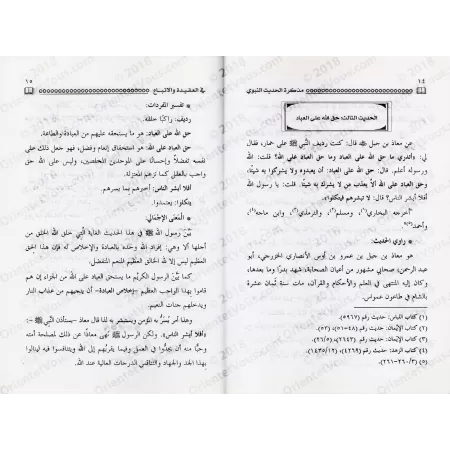 ١٤
مذكرة الحديث النبوي
الحديث الثالث: حق الله على العباد
عن معاذ بن جبل ﷺ قال: كنت رديف النَّبي ﷺ على حمار، فقال
لي: «أتدري ما حق الله على العباد وما حق العباد على الله؟ قلت: الله
ورسوله أعلم. قال: حق الله على العباد: أن يعبدوه ولا يشركوا به شيئًا،
وحق العباد على الله ألاَّ يعذب من لا يشرك به شيئًا. قلت: يا رسول الله
أفلا أبشر الناس؟ قال: لا تبشرهم فيتكلوا».
أخرجه البخاري(١)، ومسلم(٢)، والترمذي(٣)، وابن ماجه(٤)،
وأحمد(٥).
• راوي الحديث:
معاذ بن جبل بن عمرو بن أوس الأنصاري الخزرجي، أبو
عبد الرحمن، صحابي مشهور من أعيان الصحابة، شهد بدرًا وما بعدها،
وكان إليه المنتهى في العلم والأحكام والقرآن، مات سنة ثمان عشرة
بالشام في طاعون عمواس.
(١) كتاب اللباس: حديث رقم (٥٩٦٧).
(٢) كتاب الإيمان: حديث رقم (٤٨-٥١)، (٥٢).
(٣) كتاب الإيمان: حديث رقم (٢٦٤٣)، (٢٦/٥).
(٤) كتاب الزهد: حديث رقم (٤٢٦٩)، (١٤٣٥/١٢).
(٥) (٢٦٠/٣-٢٦١).
في العقيدة والاتباع
١٥
• تفسير المفردات:
رديف: راكبًا خلفه.
حق الله على العباد: هو ما يستحقه عليهم من العبادة والطاعة.
حق العباد على الله: هو استحقاق إنعام وفضل، فهو جعل ذلك على
نفسه تفضلاً وإحسانًا على الموحدين المخلصين، وليس على الله حق
واجب بالعقل كما تزعم المعتزلة.
أفلا أبشر الناس: أخبرهم بما يسرهم.
يتكلوا: يعتمدوا.
• المعنى الإجمالي:
بيَّن رسول الله ﷺ في هذا الحديث الغاية التي خلق الله الخلق من
أجلها ألا وهي: إفراد الله وحده بالعبادة والإخلاص له فإن هذا الحق
العظيم ليس إلا لله الخالق العظيم المنعم المتفضل.
كما بيَّن الرسول الكريم ما يستحق العباد على الله من الجزاء إن هم
قاموا بهذا الواجب العظيم -إخلاص العبادة- أن ينجيهم من عذاب النار
ويدخلهم جنات النعيم.
وهذا أمر يُسَرُّ به المؤمن ويستبشر به لذا قال معاذ -يستأذن النَّبي ﷺ -:
«أفلا أبشر الناس». ولكن الرسول ﷺ نهى معاذًا عن ذلك لمصلحة أمته
وحبًّا منه أن يجدُّوا في العمل وفيما يقربهم إلى الله ويتنافسوا فيه لينالوا
بهذا الجد والجهاد والتنافس الدرجات العالية عند الله.